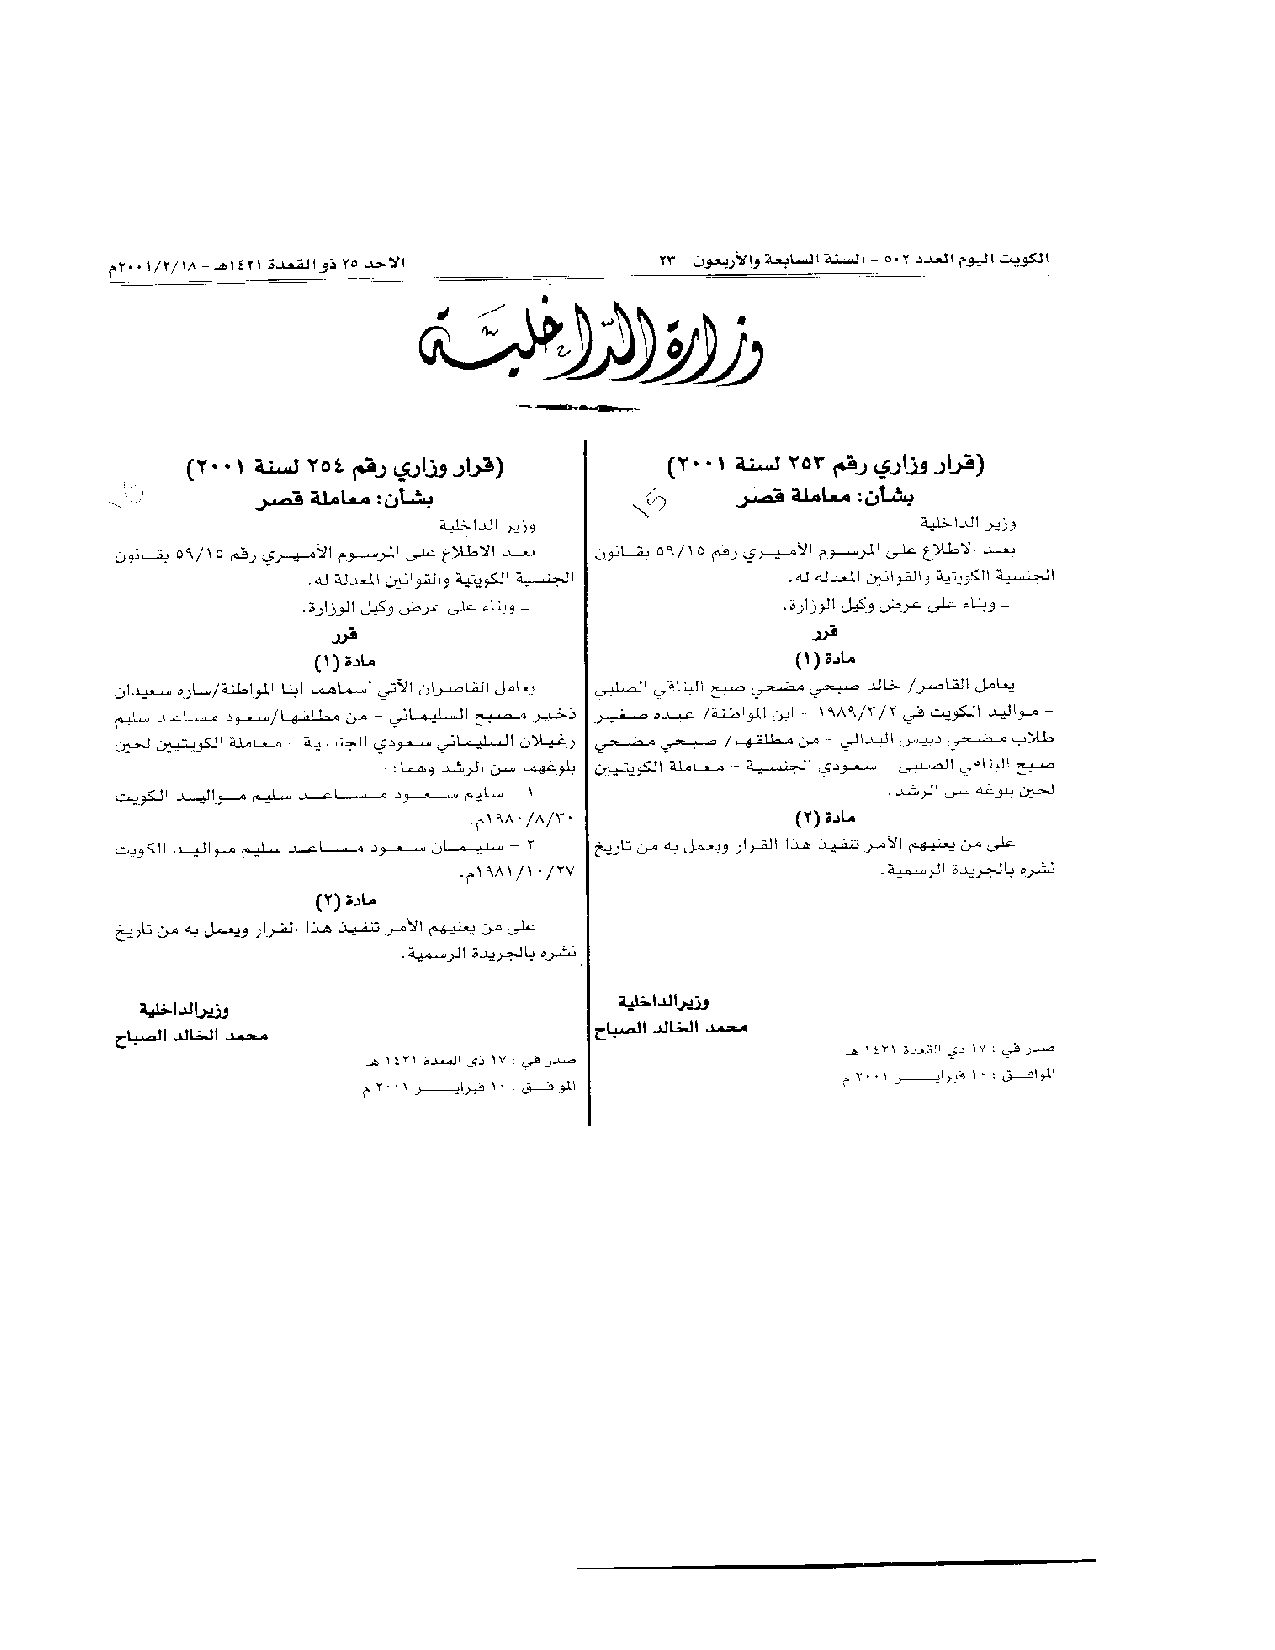 الكويت اليوم العدد ٥٠٢ - السنة السابعة والأربعون ٢٣
الاحد ٢٥ ذو القعدة ١٤٢١هـ - ٢٠٠١/٢/١٨م
وزارة الداخلية
(قرار وزاري رقم ٢٥٣ لسنة ٢٠٠١)
بشأن: معاملة قصر
وزير الداخلية
بعد الاطلاع على المرسوم الأميري رقم ٥٩/١٥ بقانون
الجنسية الكويتية والقوانين المعدله له.
- وبناء على عرض وكيل الوزارة.
قرر
مادة (١)
يعامل القاصر/ خالد صبحي مضحي صبح البناقي الصلبي
- مواليد الكويت في ١٩٨٩/٢/٢ - ابن المواطنة/ عبده صغير
طلاب مضحي دبيس البدالي - من مطلقها/ صبحي مضحي
صبح البناقي الصلبي سعودي الجنسية - معاملة الكويتيين
لحين بلوغه سن الرشد.
مادة (٢)
على من يعنيهم الأمر تنفيذ هذا القرار ويعمل به من تاريخ
نشره بالجريدة الرسمية.
وزير الداخلية
محمد الخالد الصباح
صدر في : ١٧ ذي القعدة ١٤٢١ هـ
الموافق : ١٠ فبراير ٢٠٠١ م
(قرار وزاري رقم ٢٥٤ لسنة ٢٠٠١)
بشأن: معاملة قصر
وزير الداخلية
بعد الاطلاع على المرسوم الأميري رقم ٥٩/١٥ بقانون
الجنسية الكويتية والقوانين المعدلة له.
- وبناء على عرض وكيل الوزارة.
قرر
مادة (١)
يعامل القاصران الآتي أسماهما ابنا المواطنة/ساره سعيدان
ذخير مصبح السليماني - من مطلقها/سعود مساعد سليم
رغيلان السليماني سعودي الجنسية - معاملة الكويتيين لحين
بلوغهما سن الرشد وهما:
١ سليم سعود مساعد سليم مواليد الكويت
١٩٨٠/٨/٣٠م.
٢ - سليمان سعود مساعد سليم مواليد الكويت
١٩٨١/١٠/٢٧م.
مادة (٢)
على من يعنيهم الأمر تنفيذ هذا القرار ويعمل به من تاريخ
نشره بالجريدة الرسمية.
وزير الداخلية
محمد الخالد الصباح
صدر في : ١٧ ذي القعدة ١٤٢١ هـ
الموافق : ١٠ فبراير ٢٠٠١ م